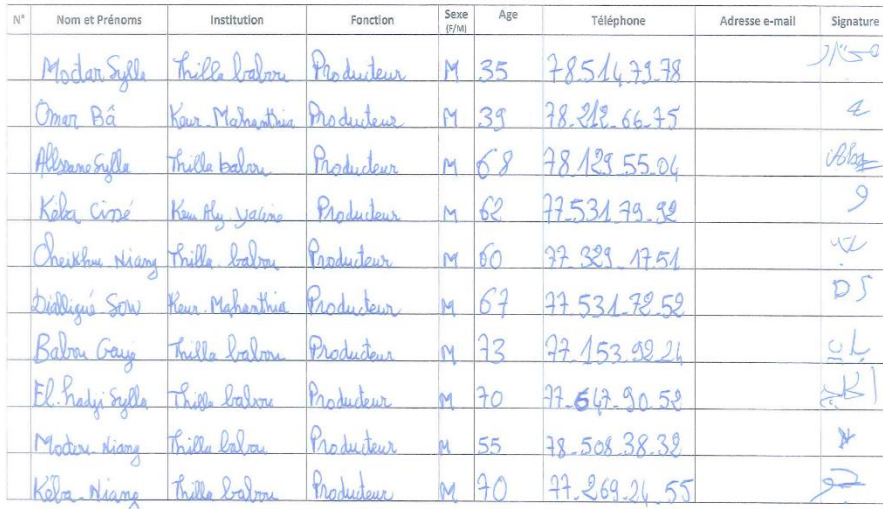 N° Nom et Prénoms Institution Fonction Sexe (F/M) Age Téléphone Adresse e-mail Signature
Moctar Sylla Thilla babou Producteur M 35 78.514.79.78
Omar Bâ Keur-Mahanthia Producteur M 39 78-212-66-75
Allssane Sylla Thilla babou Producteur M 68 78.129.55.04
Kéba Cissé Keur Aly yacine Producteur M 62 77-531 79-92
Cheikhou Niang Thilla babou Producteur M 60 77.329-17.51
Dialligué Sow Keur-Mahanthia Producteur M 67 77 531.72.52 DS
Babou Gaye Thilla babou Producteur M 73 77-153.92.24
El.hadji Sylla Thilla babou Producteur M 70 77-647-90.52
Modou Niang Thilla babou Producteur M 55 78-508.38.32
Kéba-Niang Thilla babou Producteur M 70 77-269-24-55